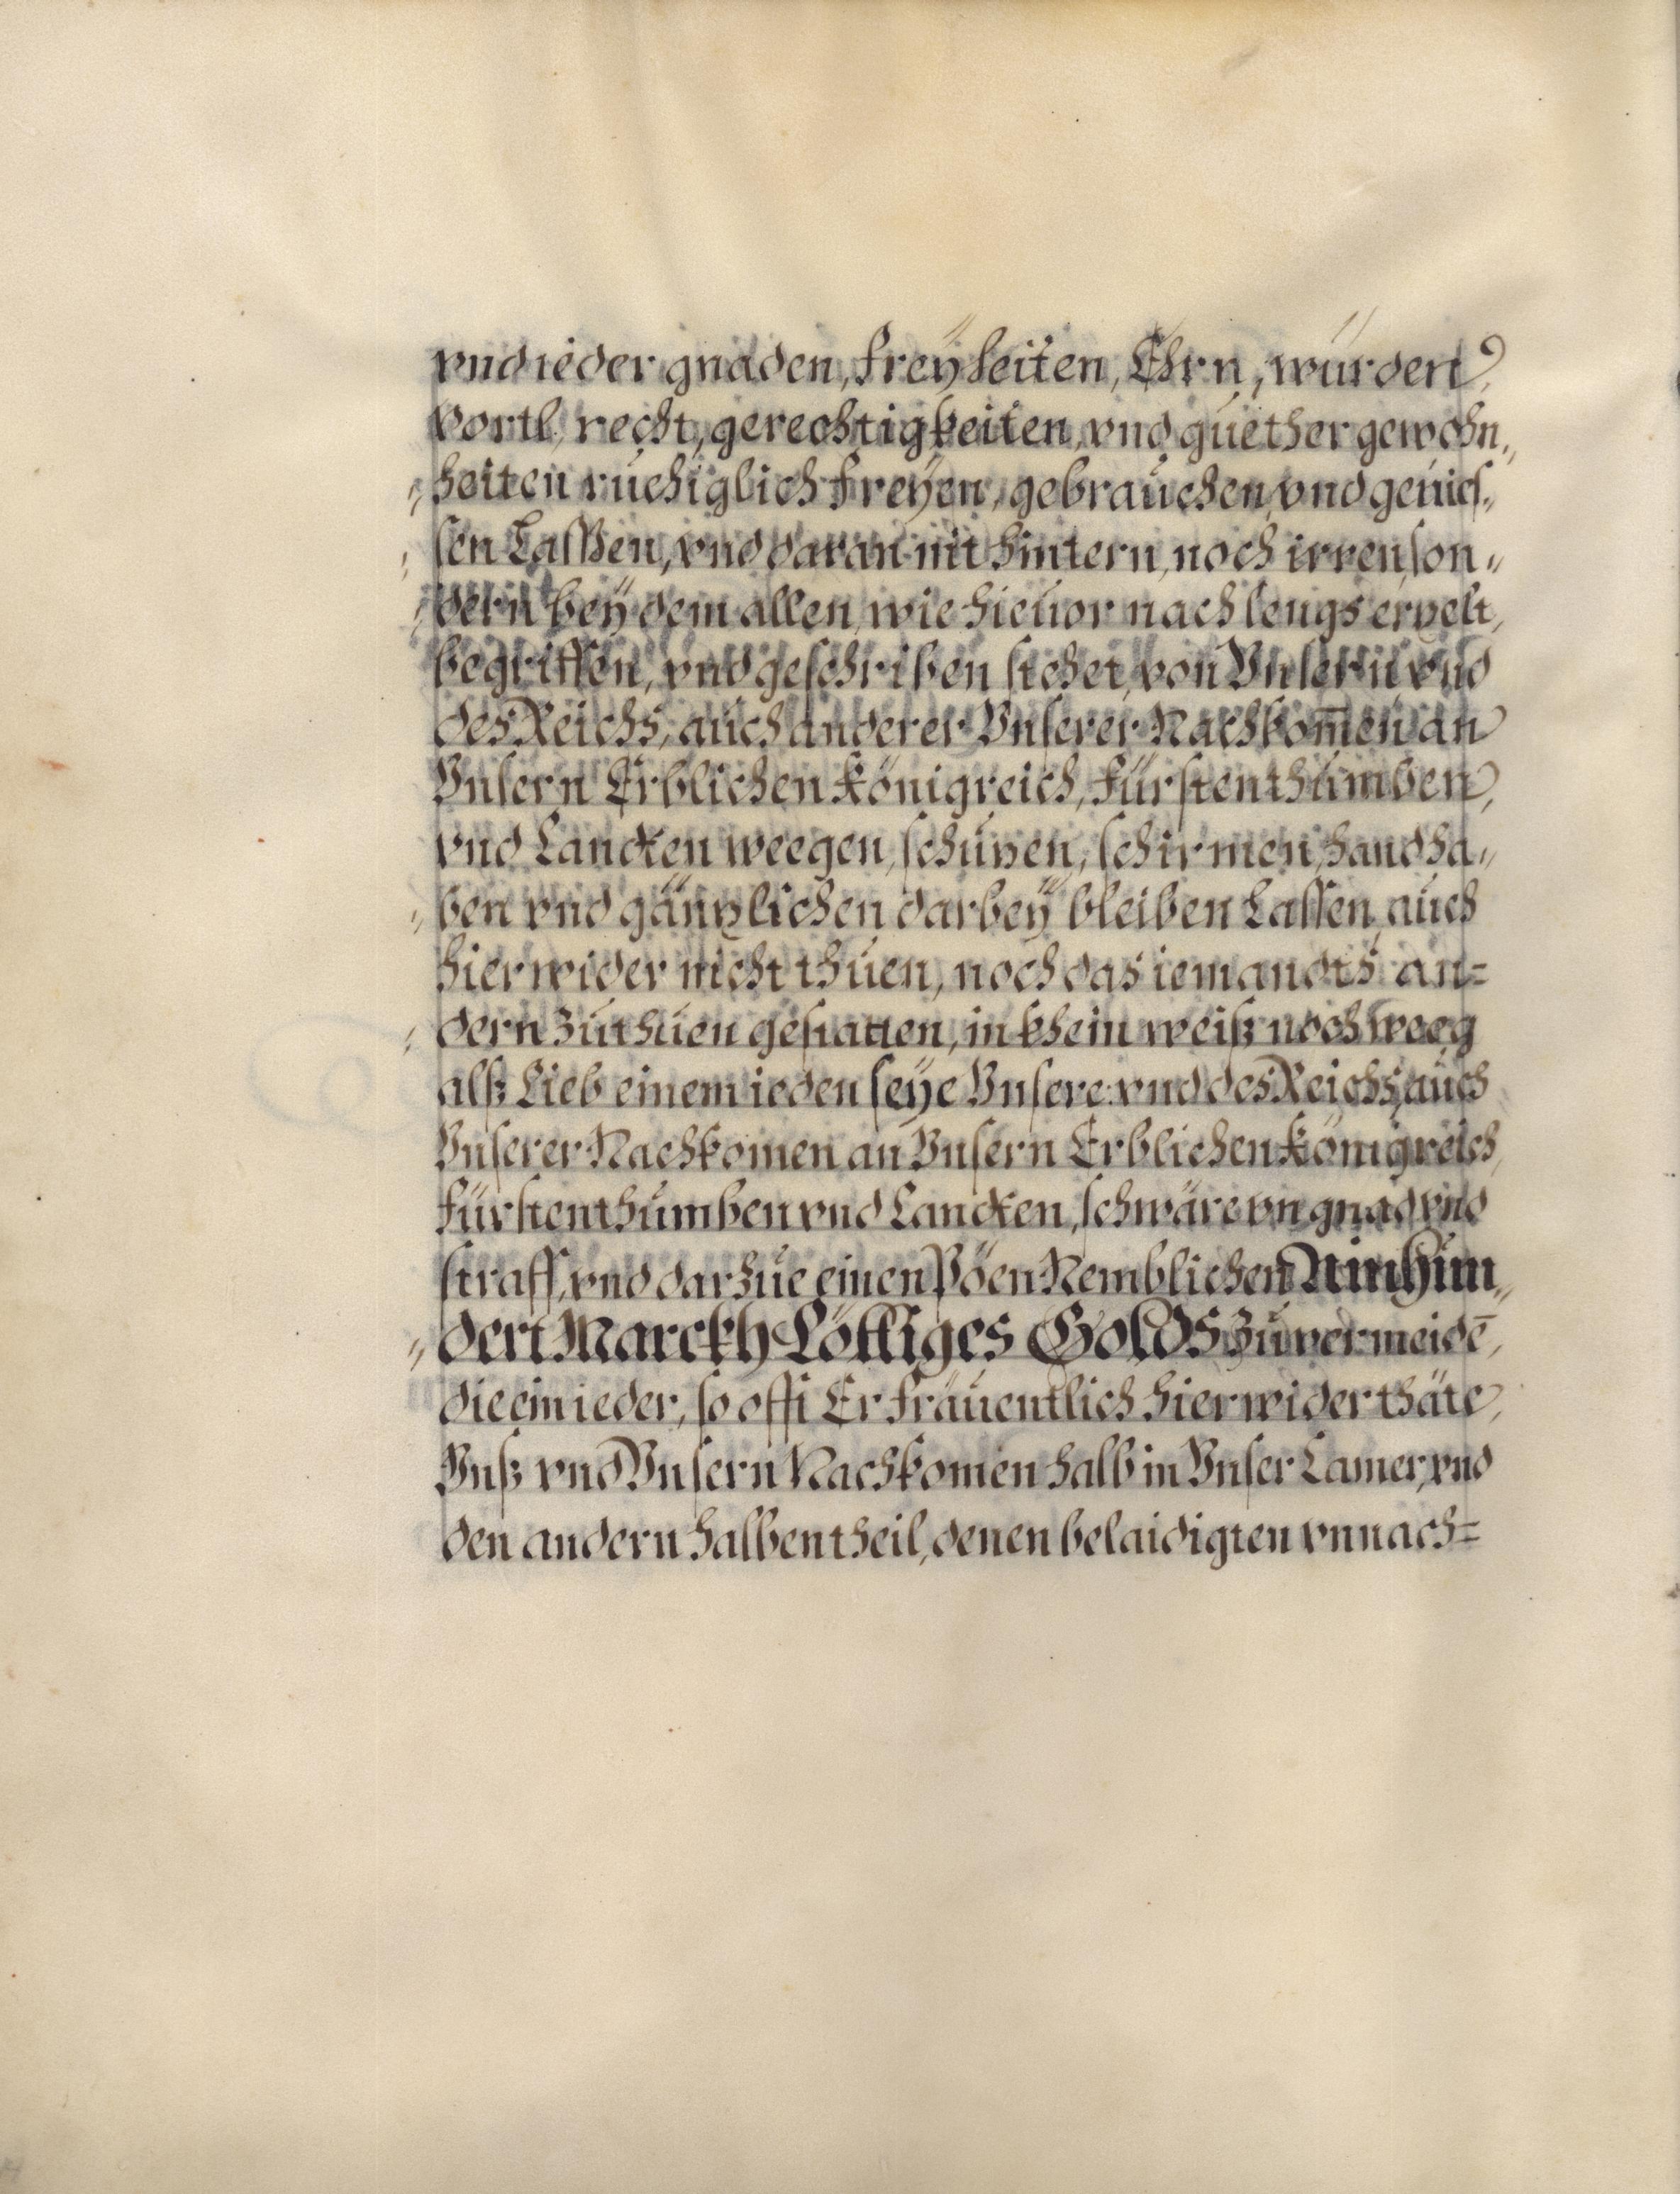 vnd ieder gnaden, freyheiten, Ehrn, würden,
vortl, recht, gerechtigkeiten, vnd guether gewohn„
„heiten ruehiglich freyen, gebrauchen, vnd genies„
„sen Lassen, vnd daran nit hintern, noch irren, son„
„dern bey dem allen, wie hieuor nach lengs erzelt,
begriffen, vnd geschriben stehet, von Vnsern vnd
des Reichs, auch anderer Vnserer Nachkom̄en an
Vnsern Erblichen Königreich, Fürstenthumben,
vnd Landten weegen, schüzen, schirmen, handha„
„ben vnd gännzlichen darbey bleiben Lassen, auch
hierwider nicht thuen, noch das iemandts an=
„dern zuthuen gestatten, in khein weiß noch weeg
alß Lieb einem ieden seye Vnsere vnd des Reichs, auch
Vnserer Nachkomen an Vnsern Erblichen Königreich,
Fürstenthumben vnd Landten, schwäre vngnad vnd
straff, vnd darzue einen Pöen Nemblichen Ainhun„
„dert Marckh Löttiges Golds zuuermeidē,
die ein ieder, so offt Er fräuentlich hierwider thäte,
Vnß vnd Vnsern Nachkomen halb in Vnser Camer, vnd
den andern halben theil, denen belaidigten vnnach=